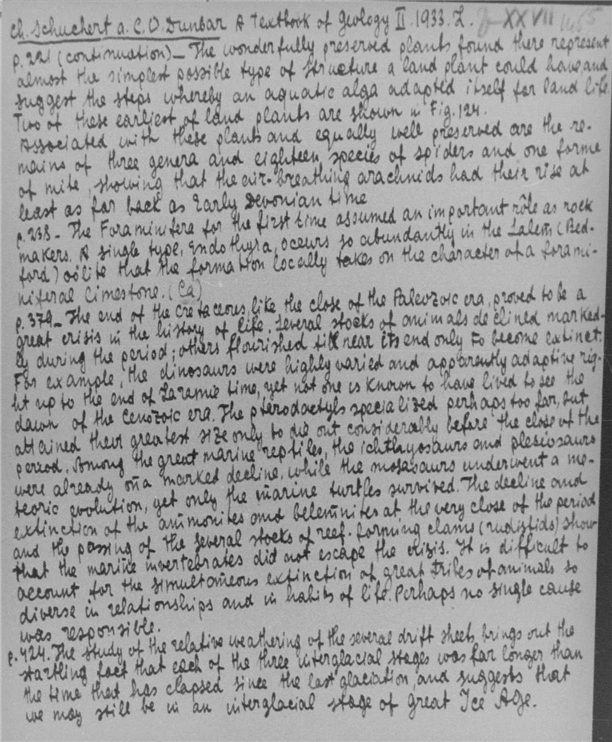 Ch. Schuchert a. C.O. Dunbar A Textbook of Geology II. 1933. L. XXVII
p. 221 (continuation) – The wonderfully preserved plants found there represent
almost the simplest possible type of structure a land plant could have and
suggest the steps whereby an aquatic alga adapted itself for land life.
Two of these earliest of land plants are shown in Fig. 124.
Associated with these plants and equally well preserved are the re-
mains of three genera and eighteen species of spiders and one forme
of mite, showing that the air-breathing arachnids had their rise at
least as far back as Early Devonian time
p. 238 – The Foraminifera for the first time assumed an important rôle as rock
makers. A single type, Endothyra, occurs so abundantly in the Salem (Bed-
ford) oölite that the formation locally takes on the character of a forami-
niferal limestone. (Ca)
p. 379 – The end of the Cretaceous, like the close of the Paleozoic era, proved to be a
great crisis in the history of life. Several stocks of animals declined marked-
ly during the period; others flourished till near its end only to become extinct.
For example, the dinosaurs were highly varied and apparently adaptive rig-
ht up to the end of Laramie time, yet not one is known to have lived to see the
dawn of the Cenozoic era. The pterodactyls specialized perhaps too far, but
attained their greatest size only to die out considerably before the close of the
period. Among the great marine reptiles, the ichthyosaurs and plesiosaurs
were already on a marked decline, while the mosasaurs underwent a me-
teoric evolution, yet only the marine turtles survived. The decline and
extinction of the ammonites and belemnites at the very close of the period
and the passing of the several stocks of reef-forming clams (rudistids) show
that the marine invertebrates did not escape the crisis. It is difficult to
account for the simultaneous extinction of great tribes of animals so
diverse in relationships and in habits of life. Perhaps no single cause
was responsible.
p. 424. The study of the relative weathering of the several drift sheets, brings out the
startling fact that each of the three interglacial stages was far longer than
the time that has elapsed since the last glaciation and suggests that
we may still be in an interglacial stage of Great Ice Age.